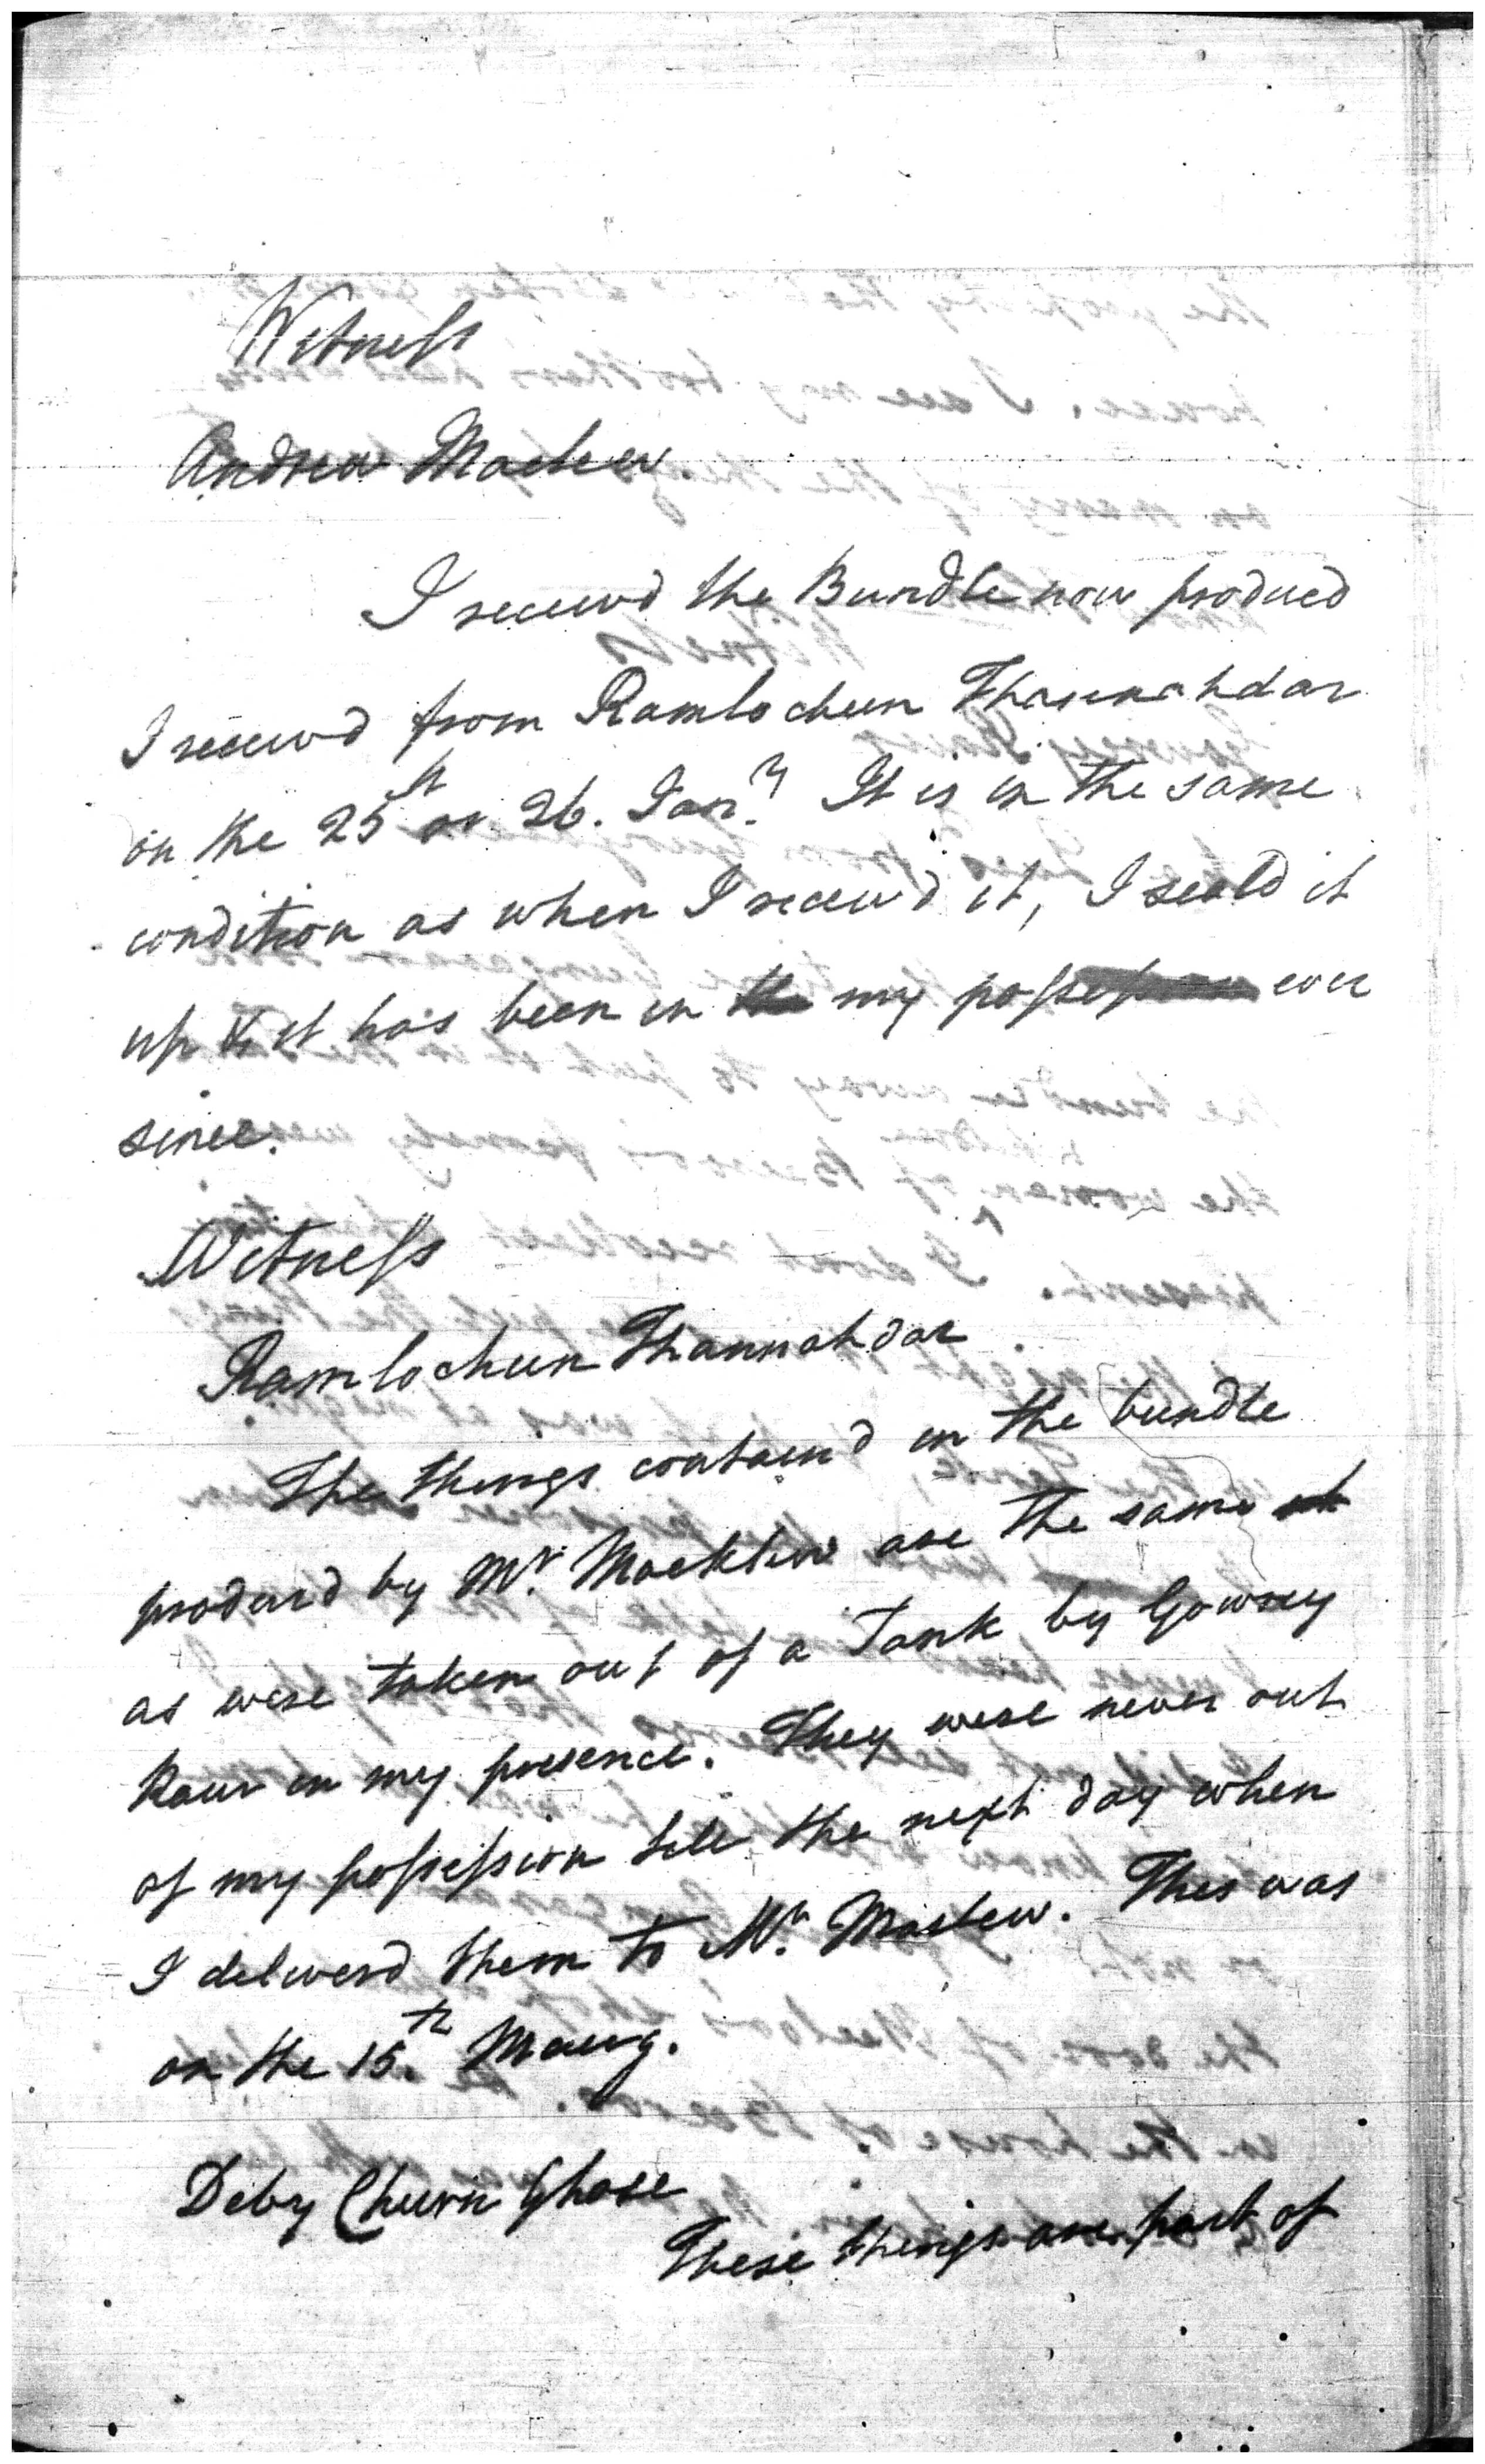 Witness
Andrew Maclew
I receivd the Bundle now producd
I receivd from Ramlochun Thannahdar
on the 25th or 26. Jany. It is in the same
condition as when I receivd it, I seald it
up & it has been in the my possession ever
since.
Witness
Ramlochun Thannahdar
The things containd in the bundle
producd by Mr. Macklew are the same
as were taken out of a Tank by Gowrey
Raur in my presence. They were never out
of my possession till the next day when
I deliverd them to Mr. Maclew. This was
on the 15.th Maug.
Deby Churn Ghose
These things are part of